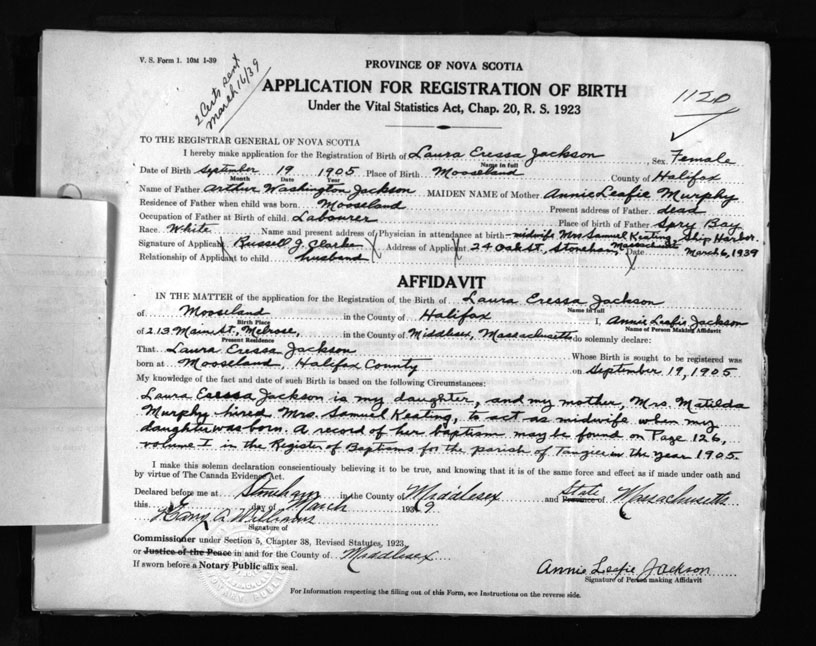 V. S. Form 1. 10M 1-39
2 Certs sent
March 16/39
PROVINCE OF NOVA SCOTIA
APPLICATION FOR REGISTRATION OF BIRTH
Under the Vital Statistics Act, Chap. 20, R. S. 1923
1120
TO THE REGISTRAR GENERAL OF NOVA SCOTIA
I hereby make application for the Registration of Birth of Laura Eressa Jackson, Sex Female
Name in full
Date of Birth September 19 1905 Place of Birth Mooseland County of Halifax
Month Date Year
Name of Father Arthur Washington Jackson MAIDEN NAME of Mother Annie Leafie Murphy
Residence of Father when child was born Mooseland Present address of Father dead
Occupation of Father at Birth of child Labourer Place of birth of Father Spry Bay
Race White Name and present address of Physician in attendance at birth midwife Mrs Samuel Keating, Ship Harbor.
Signature of Applicant Russell J. Clarke Address of Applicant 24 Oak St, Stoneham, Massachusetts Date March 6, 1939
Relationship of Applicant to child husband
AFFIDAVIT
IN THE MATTER of the application for the Registration of the Birth of Laura Eressa Jackson
Name in full
of Mooseland in the County of Halifax I, Annie Leafie Jackson
Birth Place Name of Person Making Affidavit
of 213 Main St, Melrose, in the County of Middlesex, Massachusetts do solemnly declare:
Present Residence
That Laura Eressa Jackson Whose Birth is sought to be registered was
born at Mooseland, Halifax County on September 19, 1905
My knowledge of the fact and date of such Birth is based on the following Circumstances:
Laura Eressa Jackson is my daughter, and my mother, Mrs. Matilda
Murphy hired Mrs. Samuel Keating, to act as midwife when my
daughter was born. A record of her baptism may be found on Page 126,
volume I in the Register of Baptisms for the parish of Tangier in the year 1905.
I make this solemn declaration conscientiously believing it to be true, and knowing that it is of the same force and effect as if made under oath and
by virtue of The Canada Evidence Act.
Declared before me at Stoneham in the County of Middlesex and State Province of Massachusetts
this day of March 1939
A. Williams
Signature of
Commissioner under Section 5, Chapter 38, Revised Statutes, 1923,
or Justice of the Peace in and for the County of Middlesex
If sworn before a Notary Public affix seal.
Annie Leafie Jackson
Signature of Person making Affidavit
For Information respecting the filling out of this Form, see Instructions on the reverse side.